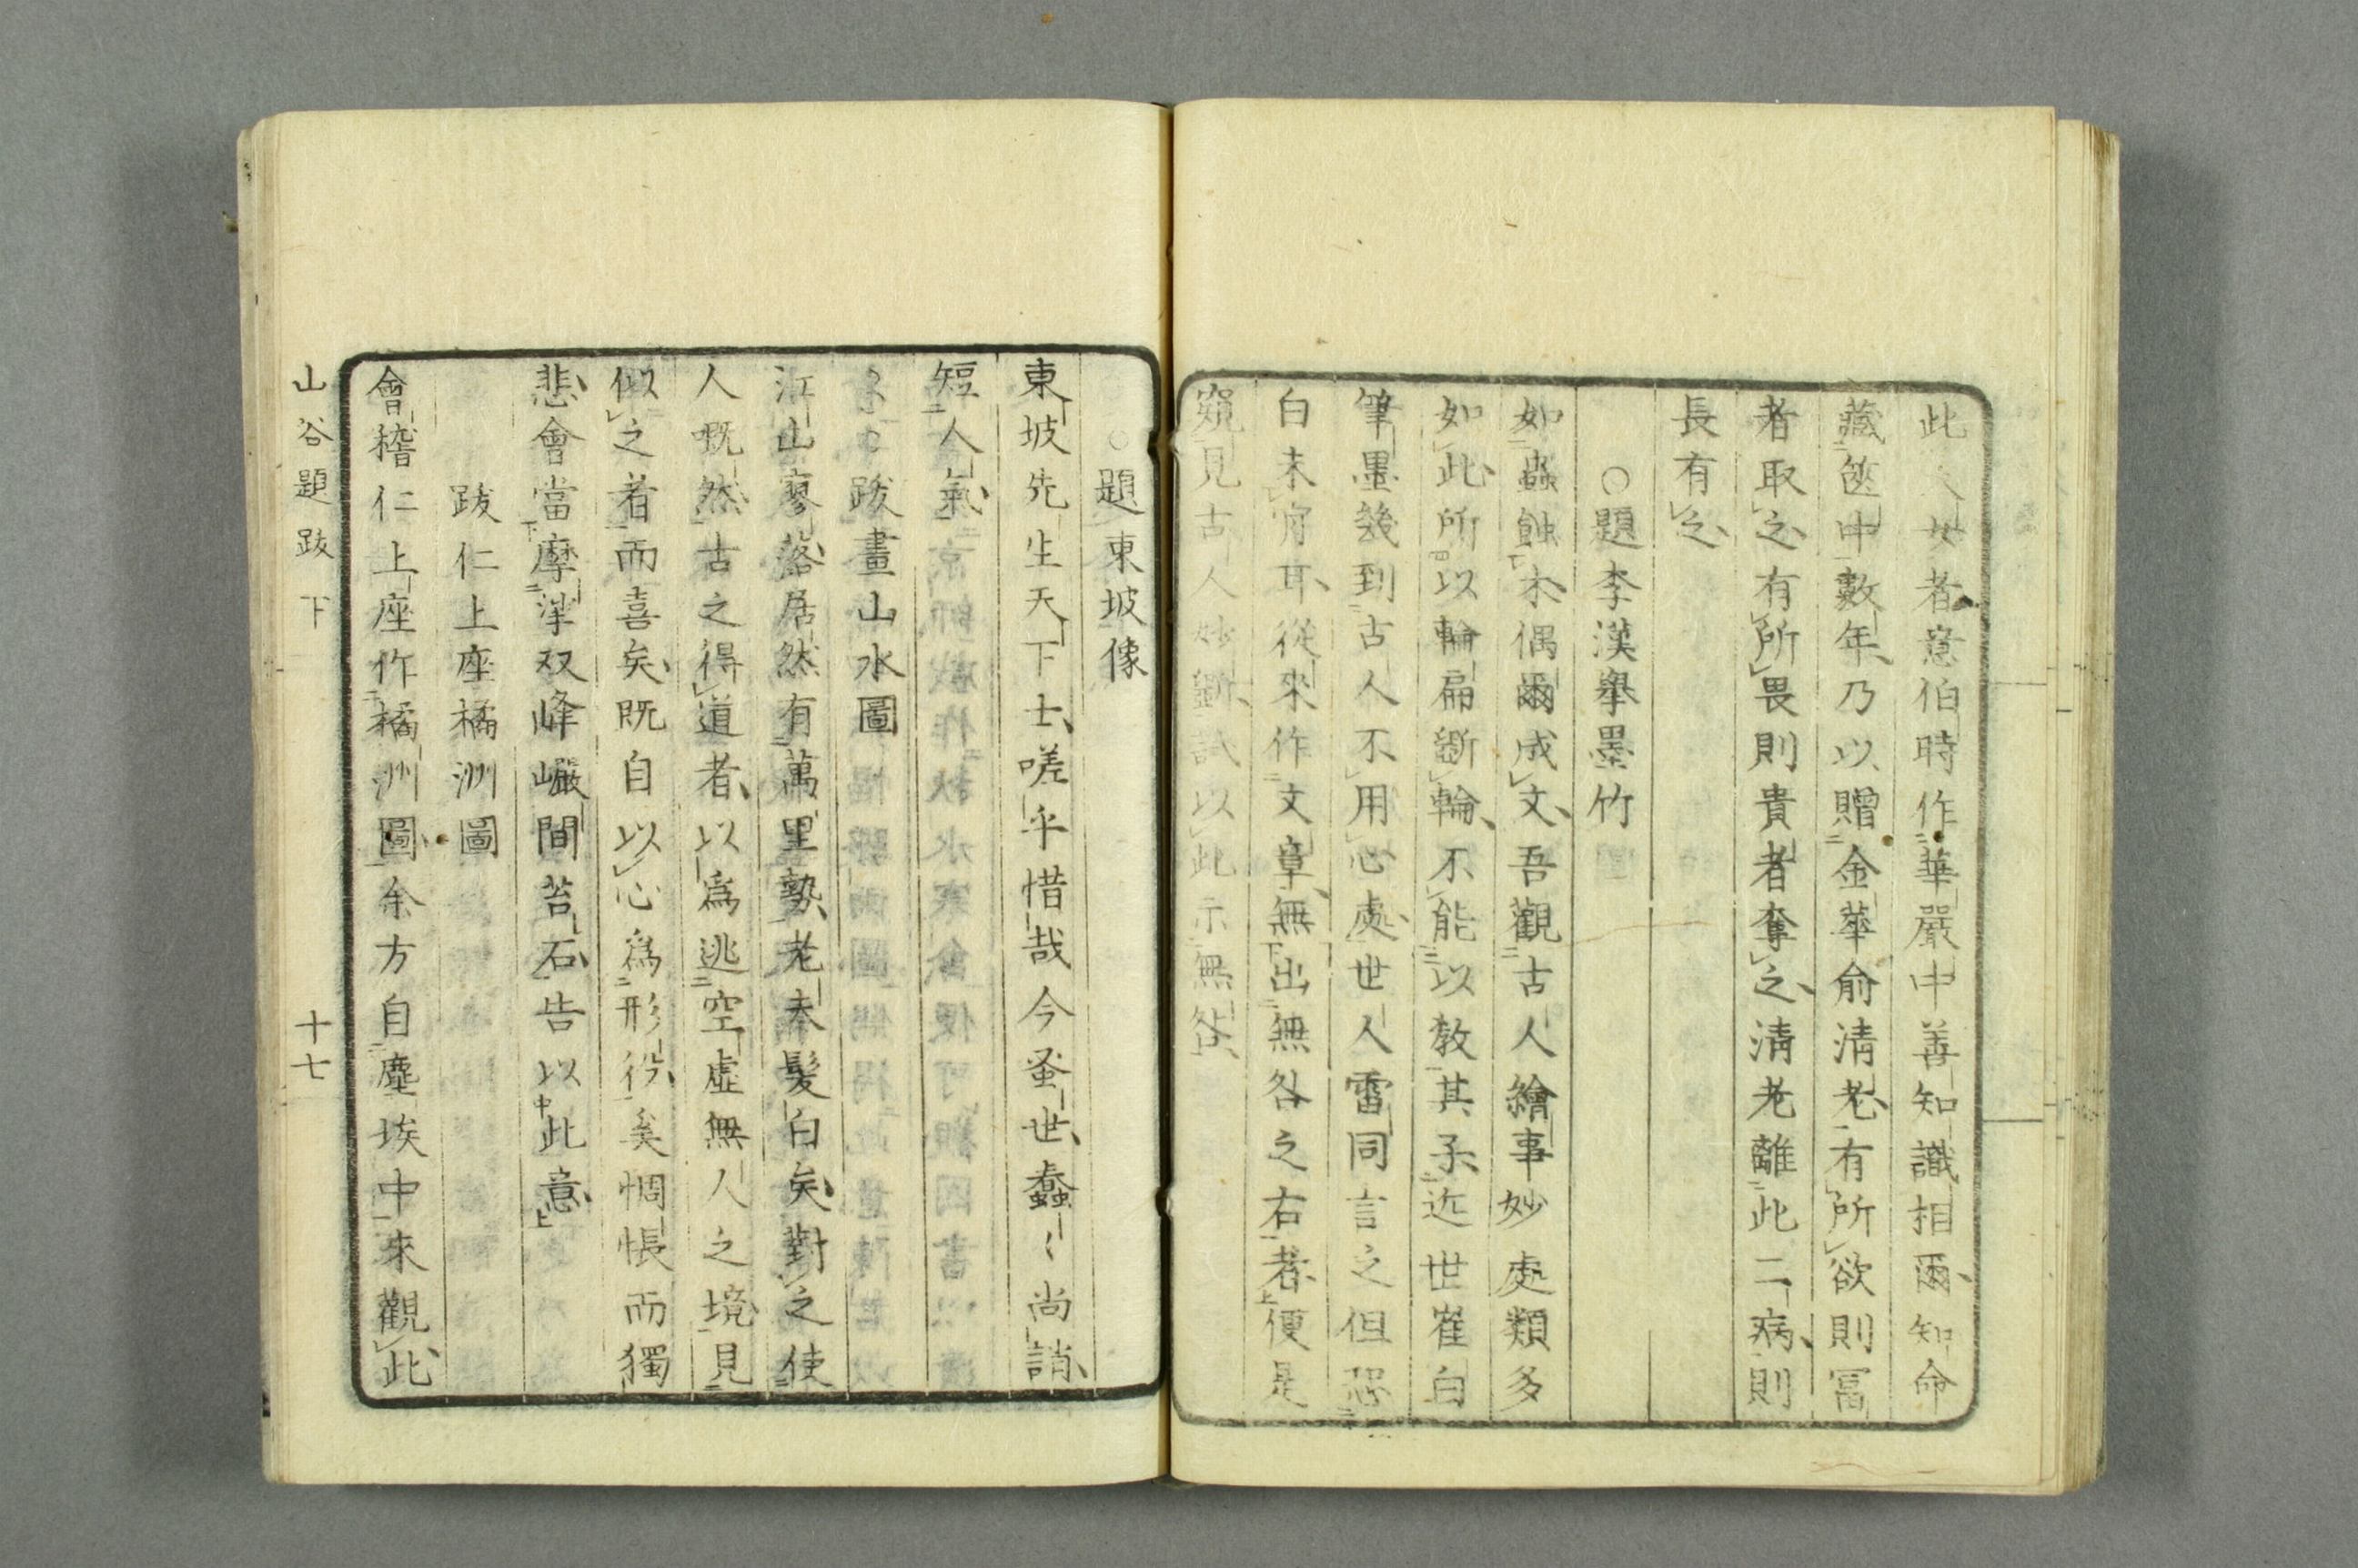 此 女者意伯時作華嚴中善知識相爾知命
藏篋中數年乃以贈金華俞清老有所欲則冨
者取之有所畏則貴者奪之清老離此二病則
長有之
○題李漢舉墨竹
如蟲蝕木偶爾成文吾觀古人繪事妙處類多
如此所以輪扁斲輪不能以教其子近世崔白
筆墨幾到古人不用心處世人雷同言之但恐
白未肎耳從來作文章無出無咎之右者便是
窺見古人妙斲試以此示無咎
○題東坡像
東坡先生天下士嗟乎惜哉今蚤世蠢〻尚誚
短人氣
跋畫山水圖
江山寥落居然有萬里勢老夫髮白矣對之使
人慨然古之得道者以爲逃空虛無人之境見
似之者而喜矣既自以心爲形役奚惆悵而獨
悲會當摩挲双峰巖間苔石告以此意
跋仁上座橘洲圖
會稽仁上座作橘洲圖余方自塵埃中來觀此
山谷題跋 下 十七